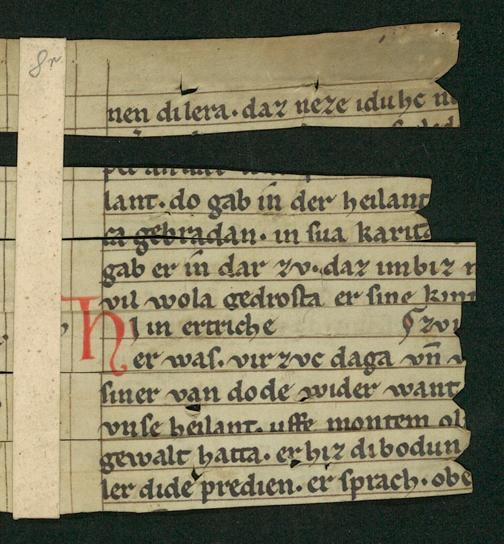 8r
nen di lera. daz neze iduhc
lant. do gab in der heilant
ca gebradan. in sua karita
gab er in dar zv. daz imbiz
vil wola gedrosta er sine kin
Hi in ertriche
er was. virzvc daga vn̄
siner van dode wider want
vnse heilant. uffe montem ol
gewalt hatta. er hiz di bodun
ler dide predien. er sprach. obe